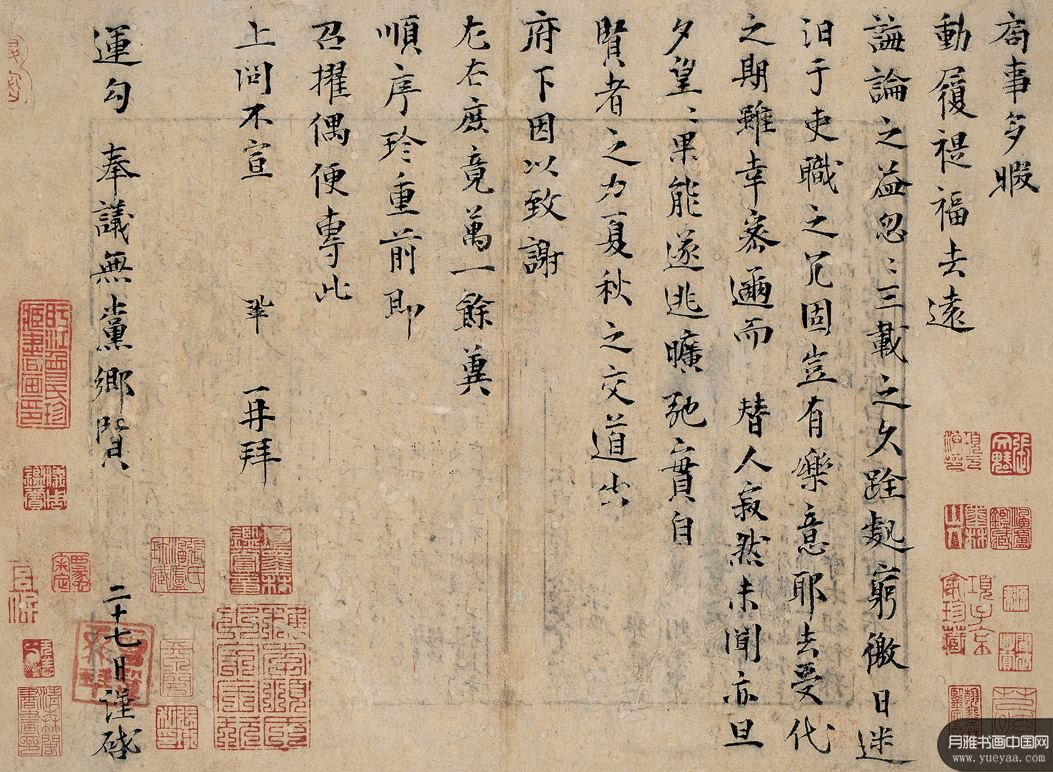 局事多暇
動履禔福去遠
誨論之益忽〻三載之久跧處窮徼日迷
汩于吏職之冗固豈有樂意耶去受代
之期雖幸密邇而 替人寂然未聞亦旦
夕望〻果能遂逃曠弛實自
賢者之力夏秋之交道出
府下因以致謝
左右庶竟萬一餘冀
順序珍重前即
召擢偶便專此
上問不宣 鞏 再拜
運勾 奉議無黨鄉賢 二十七日謹啟
月雅书画中国网
www.yueyaa.com